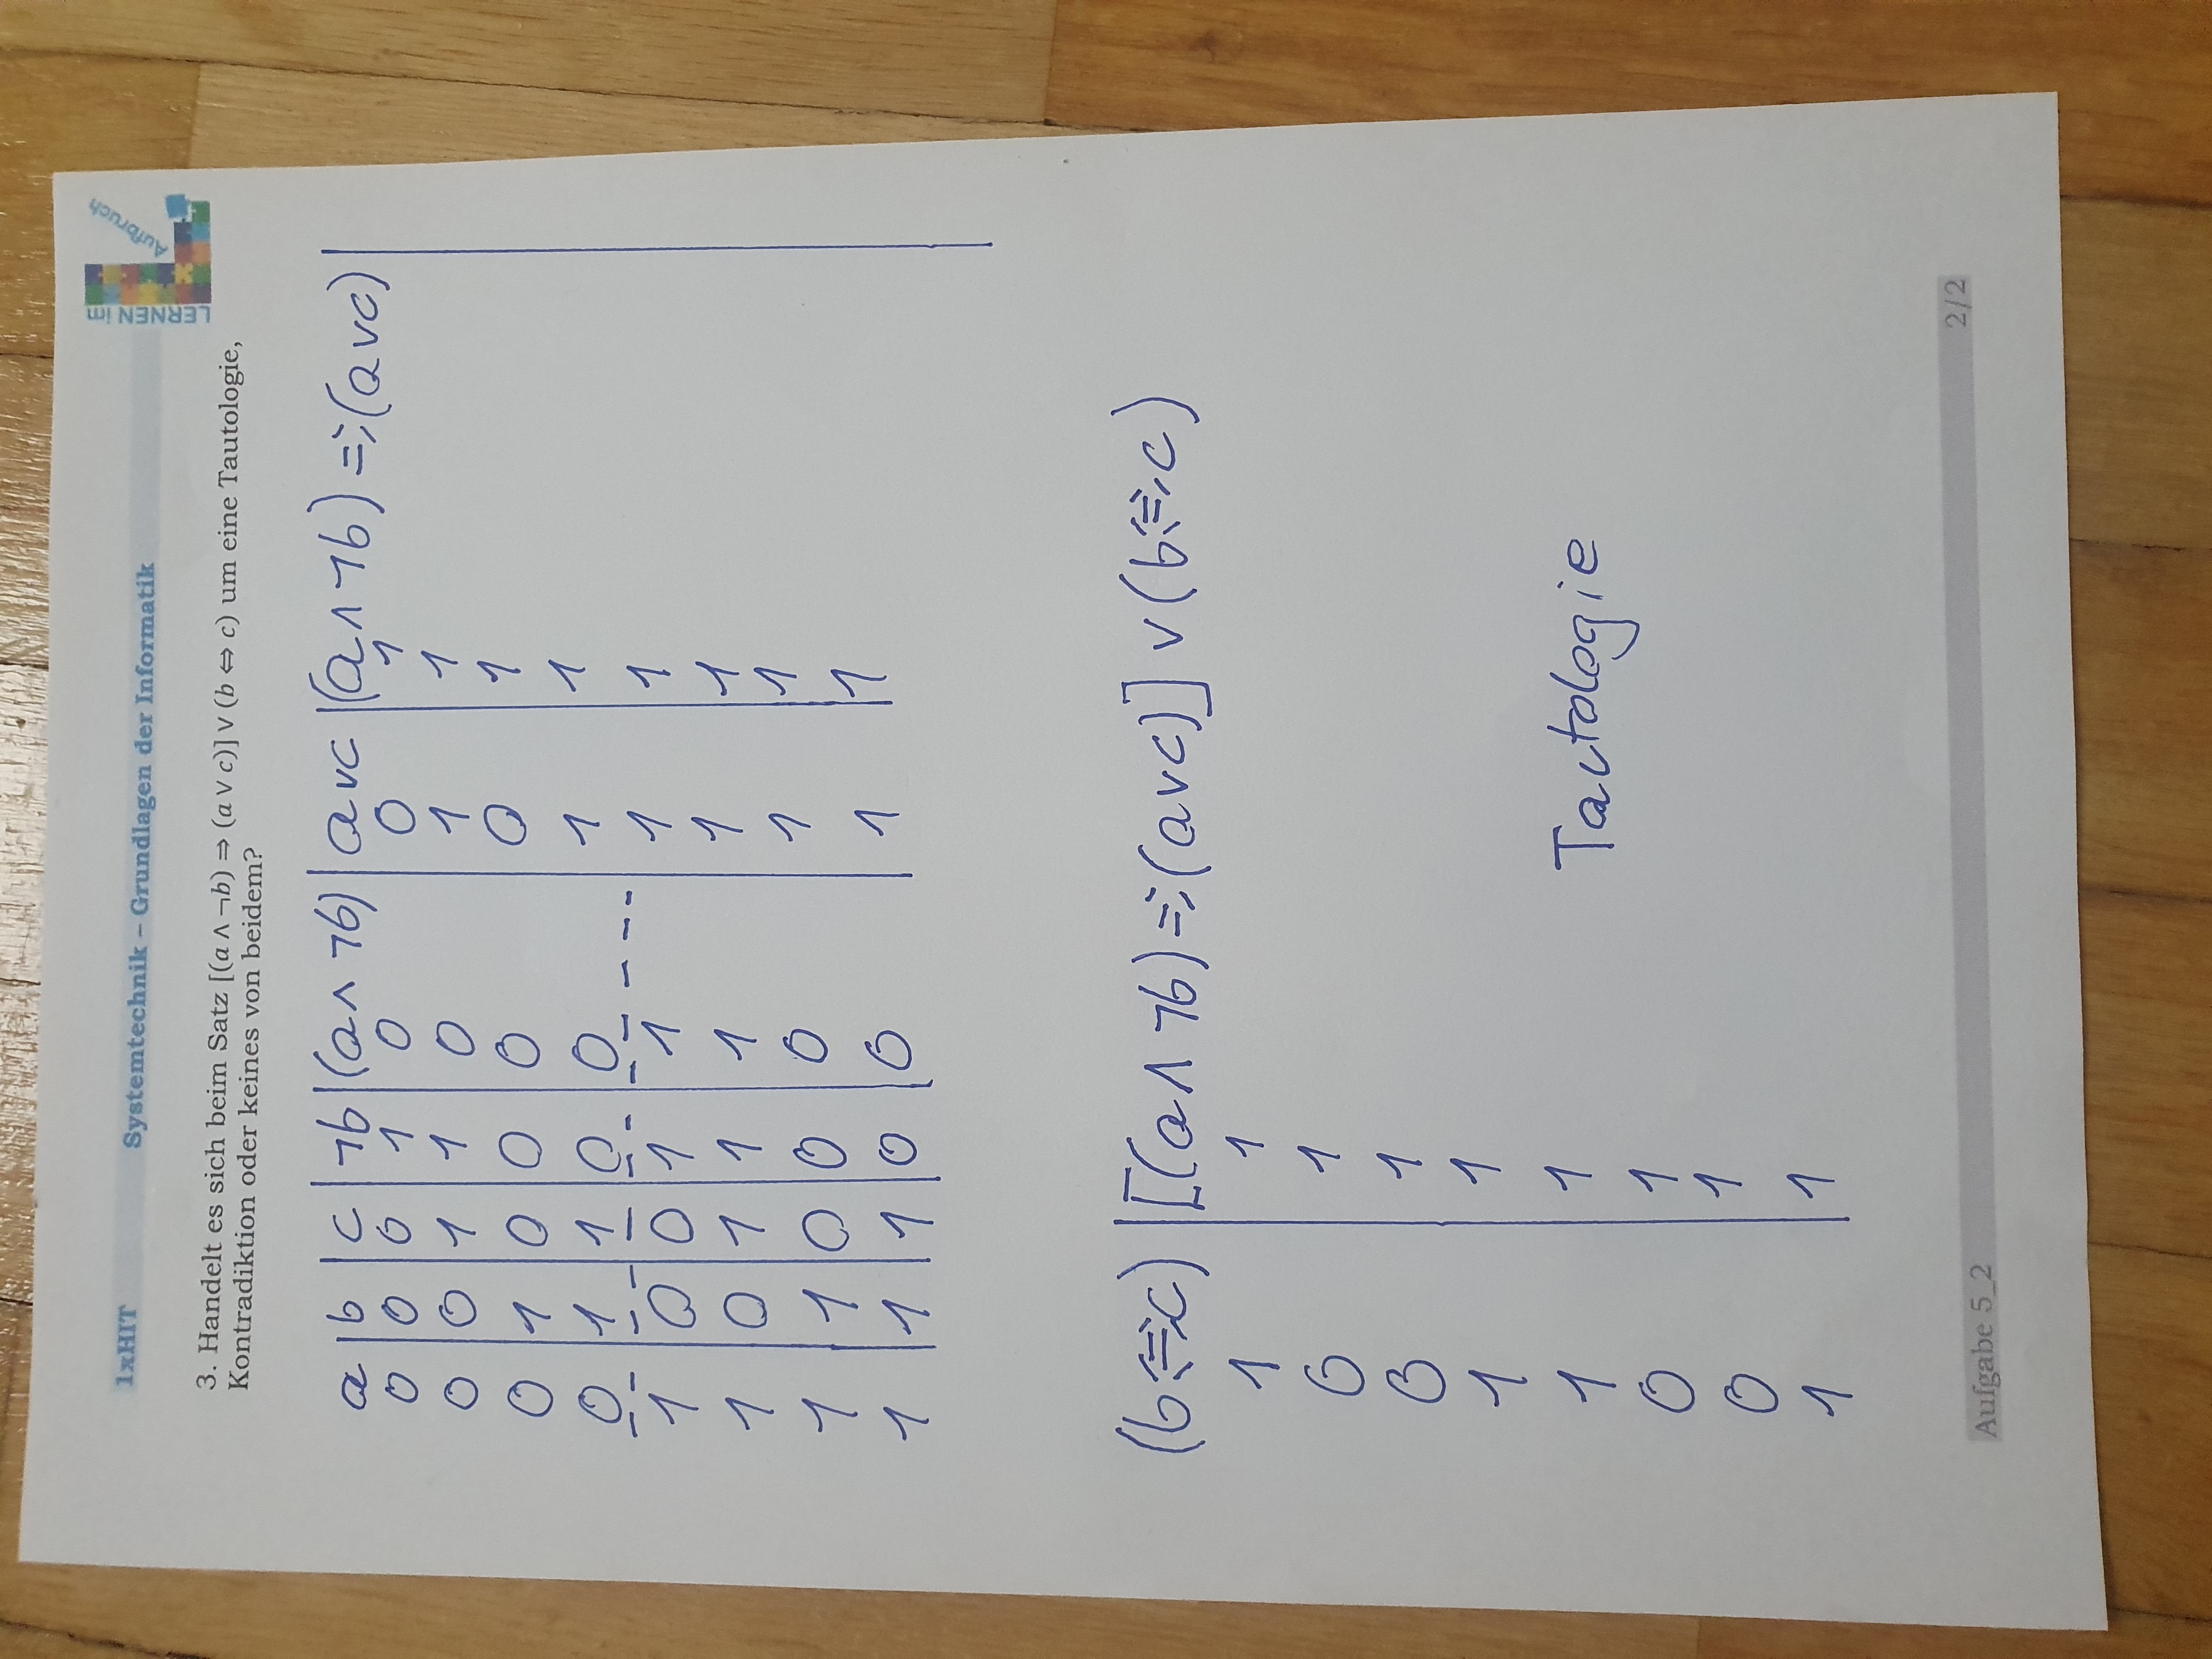 1xHIT Systemtechnik – Grundlagen der Informatik
LERNEN im Aufbruch
3. Handelt es sich beim Satz [(a ∧ ¬b) ⇒ (a ∨ c)] ∨ (b ⇔ c) um eine Tautologie,
Kontradiktion oder keines von beidem?
a | b | c | ¬b | (a ∧ ¬b) | a ∨ c | (a ∧ ¬b) ⇒ (a ∨ c) |
0 0 0 1 0 0 1
0 0 1 1 0 1 1
0 1 0 0 0 0 1
0 1 1 0 0 1 1
1 0 0 1 1 1 1
1 0 1 1 1 1 1
1 1 0 0 0 1 1
1 1 1 0 0 1 1
(b ⇔ c) | [(a ∧ ¬b) ⇒ (a ∨ c)] ∨ (b ⇔ c)
1 1
0 1
0 1
1 1
1 1
0 1
0 1
1 1
Tautologie
Aufgabe 5_2 2/2